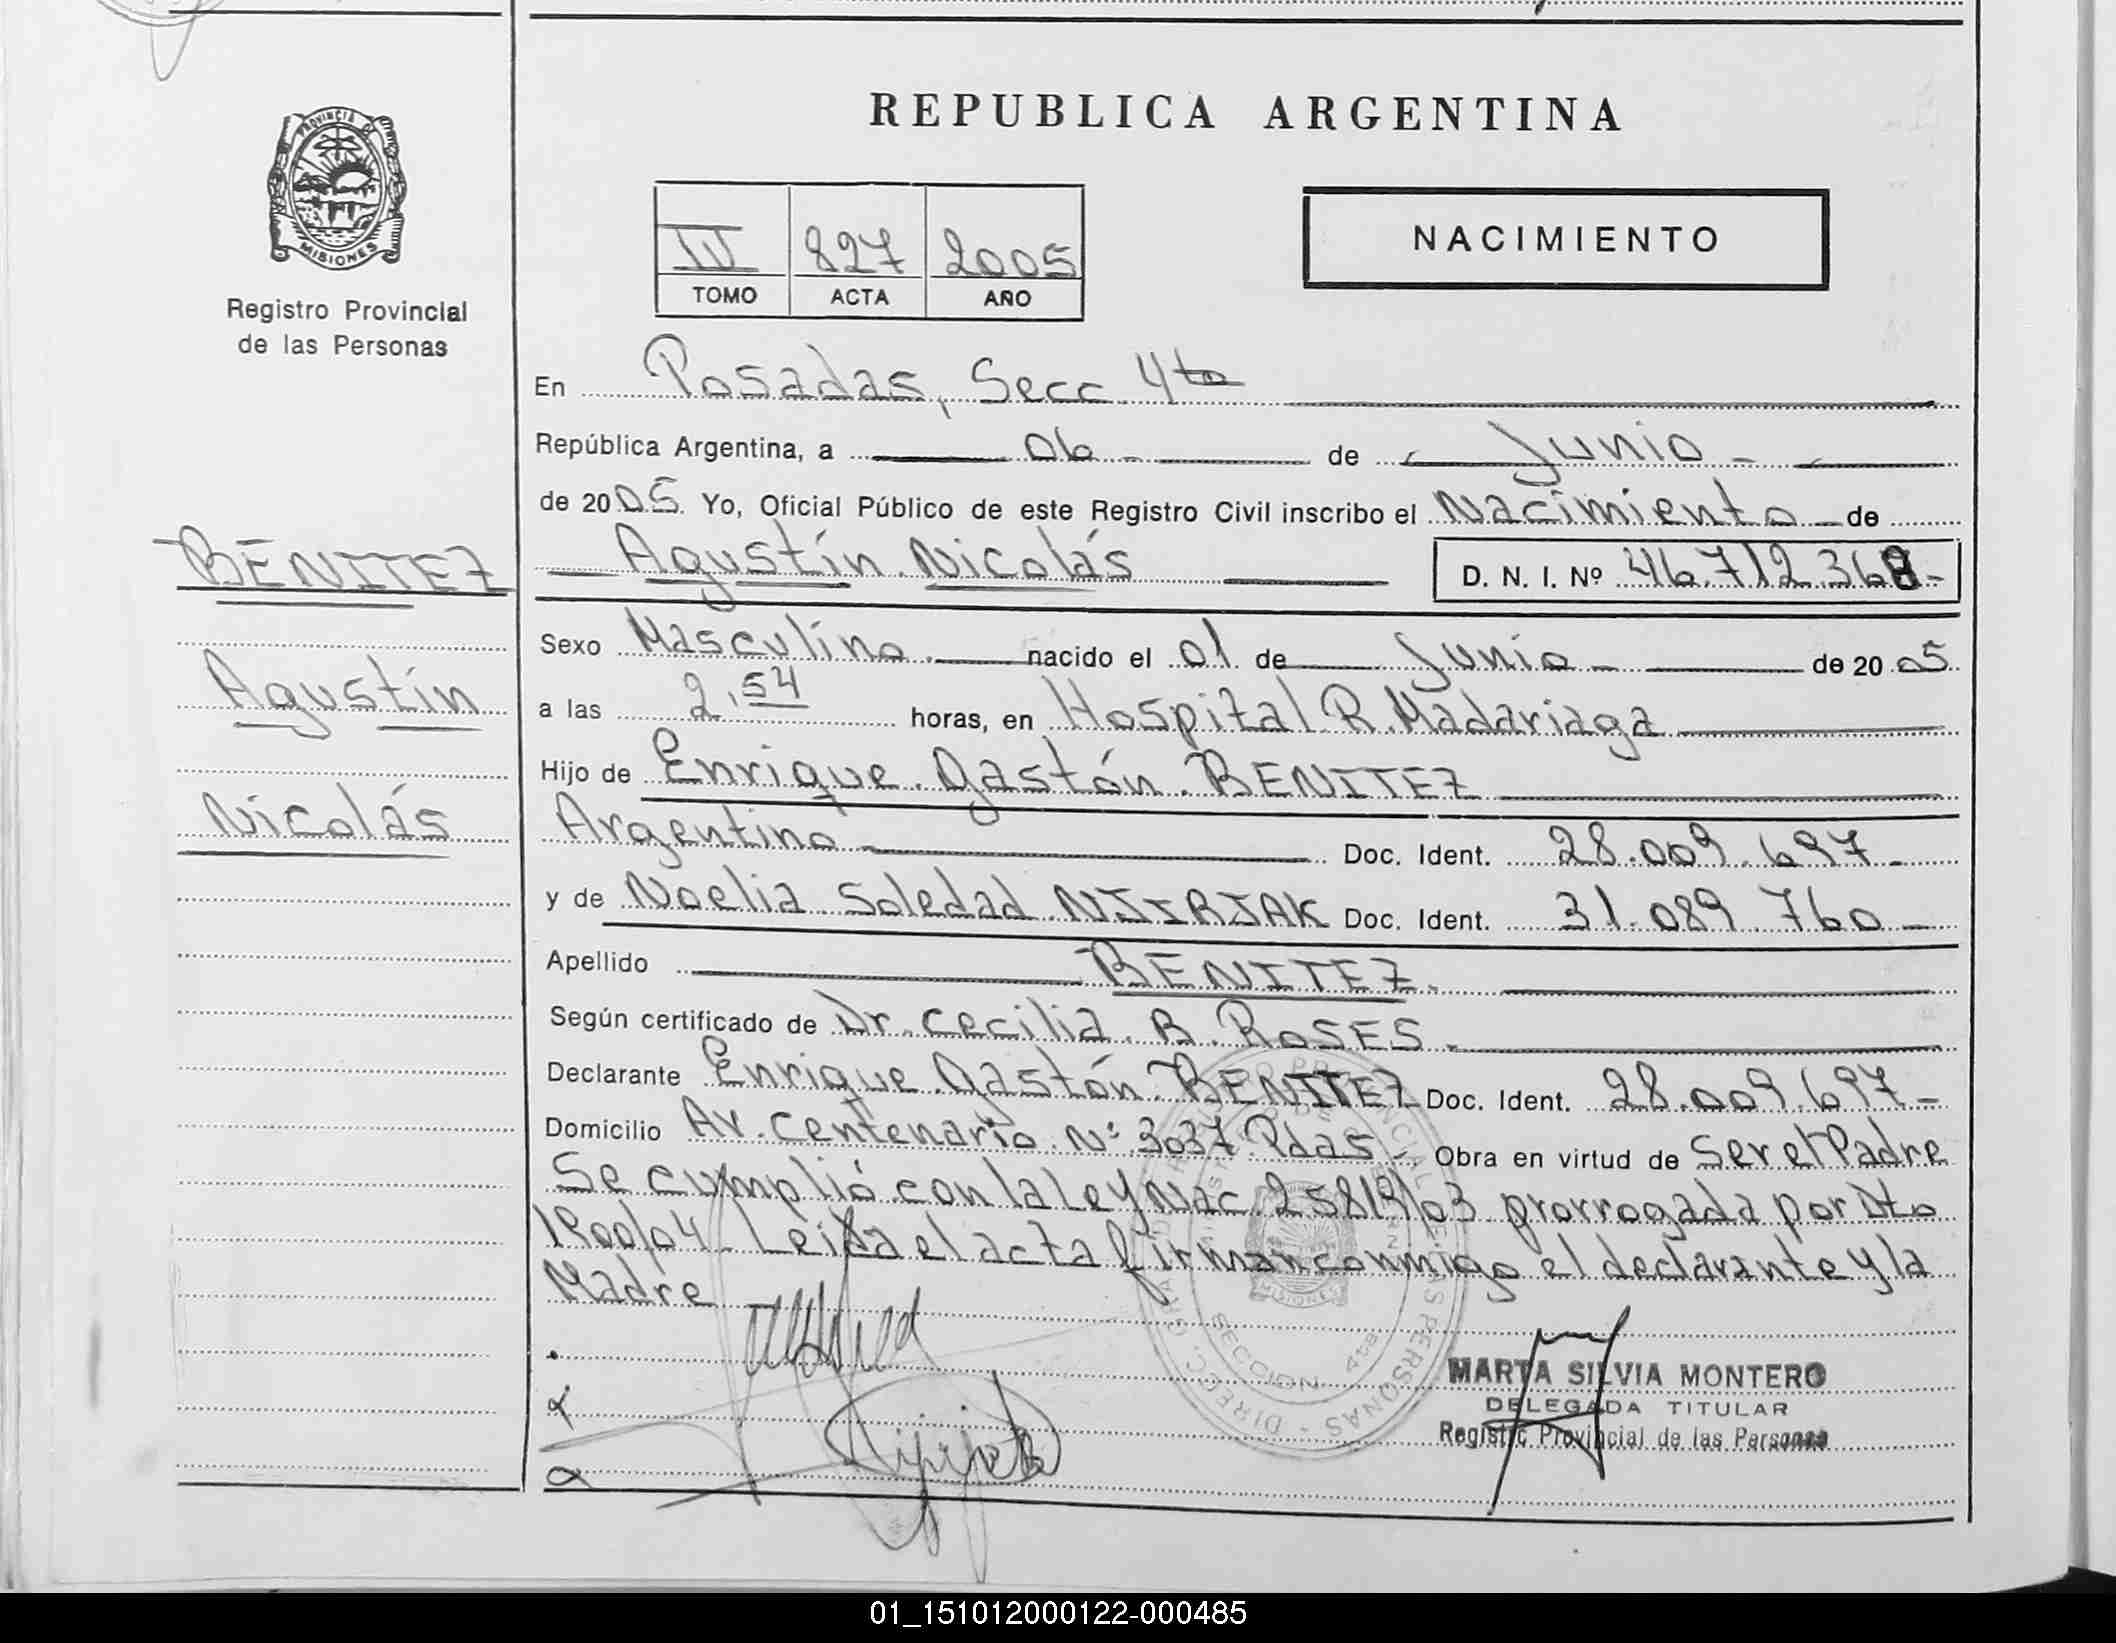 REPUBLICA ARGENTINA
PROVINCIA DE
MISIONES
Registro Provincial
de las Personas
NACIMIENTO
827 2005
TOMO ACTA AÑO
En Posadas, Secc. 4ta
República Argentina, a 06 - de Junio -
de 2005 Yo, Oficial Público de este Registro Civil inscribo el Nacimiento de
Agustín Nicolás D. N. I. Nº 46.712.368-
BENITEZ
Agustín
Nicolás
Sexo Masculino nacido el 01 de Junio - de 2005
a las 2,54 horas, en Hospital R. Madariaga
Hijo de Enrique Gastón BENITEZ
Argentino Doc. Ident. 28.009.697-
y de Noelia Soledad Doc. Ident. 31.089.760-
Apellido BENITEZ.
Según certificado de Dr. Cecilia B. ROSES.
Declarante Enrique Gastón BENITEZ Doc. Ident. 28.009.697-
Domicilio Av. Centenario Nº 3037 Pdas - Obra en virtud de Ser el Padre
Se cumplió con la ley Nac. 25819/03 prorrogada por Dto
1900/04 - Leída el acta firman conmigo el declarante y la
Madre
SECCION 4ta
MARTA SILVIA MONTERO
DELEGADA TITULAR
Registro Provincial de las Personas
01_151012000122-000485